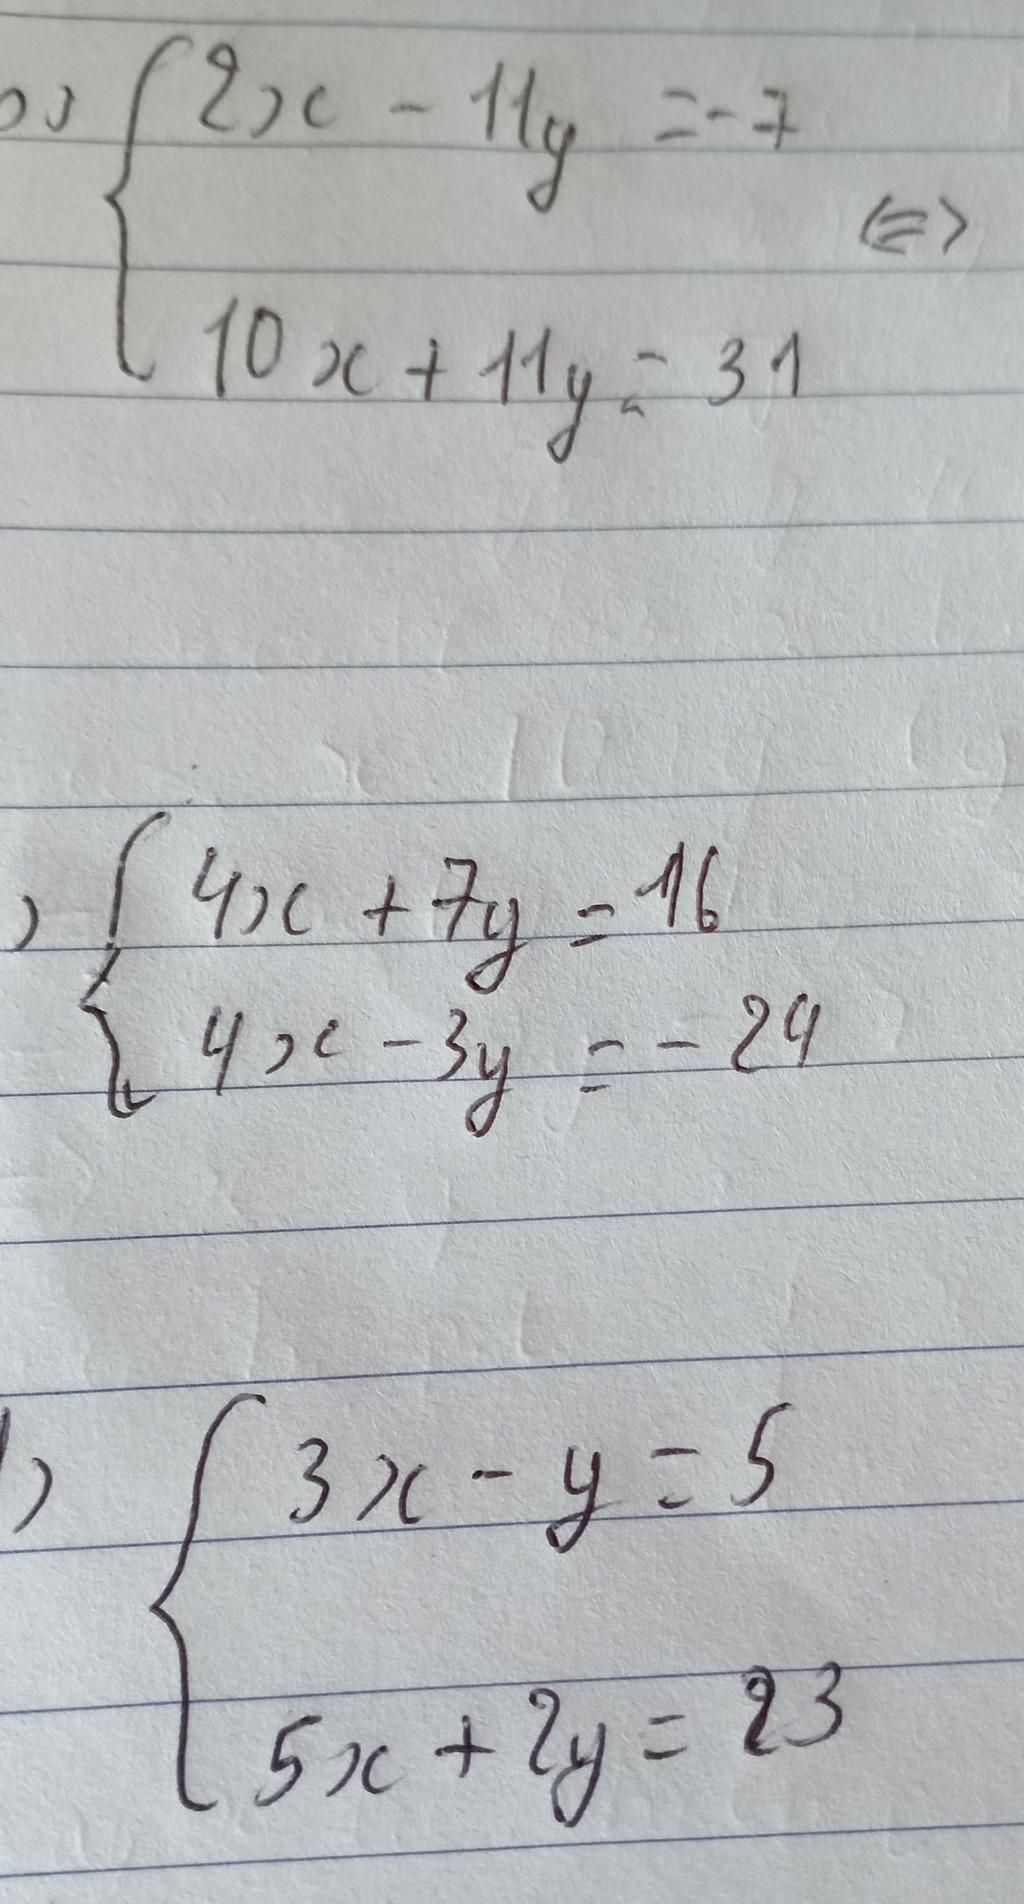 2x - 11y = -7
<=>
10x + 11y = 31
) 4x + 7y = 16
4x - 3y = - 24
) 3x - y = 5
5x + 2y = 23